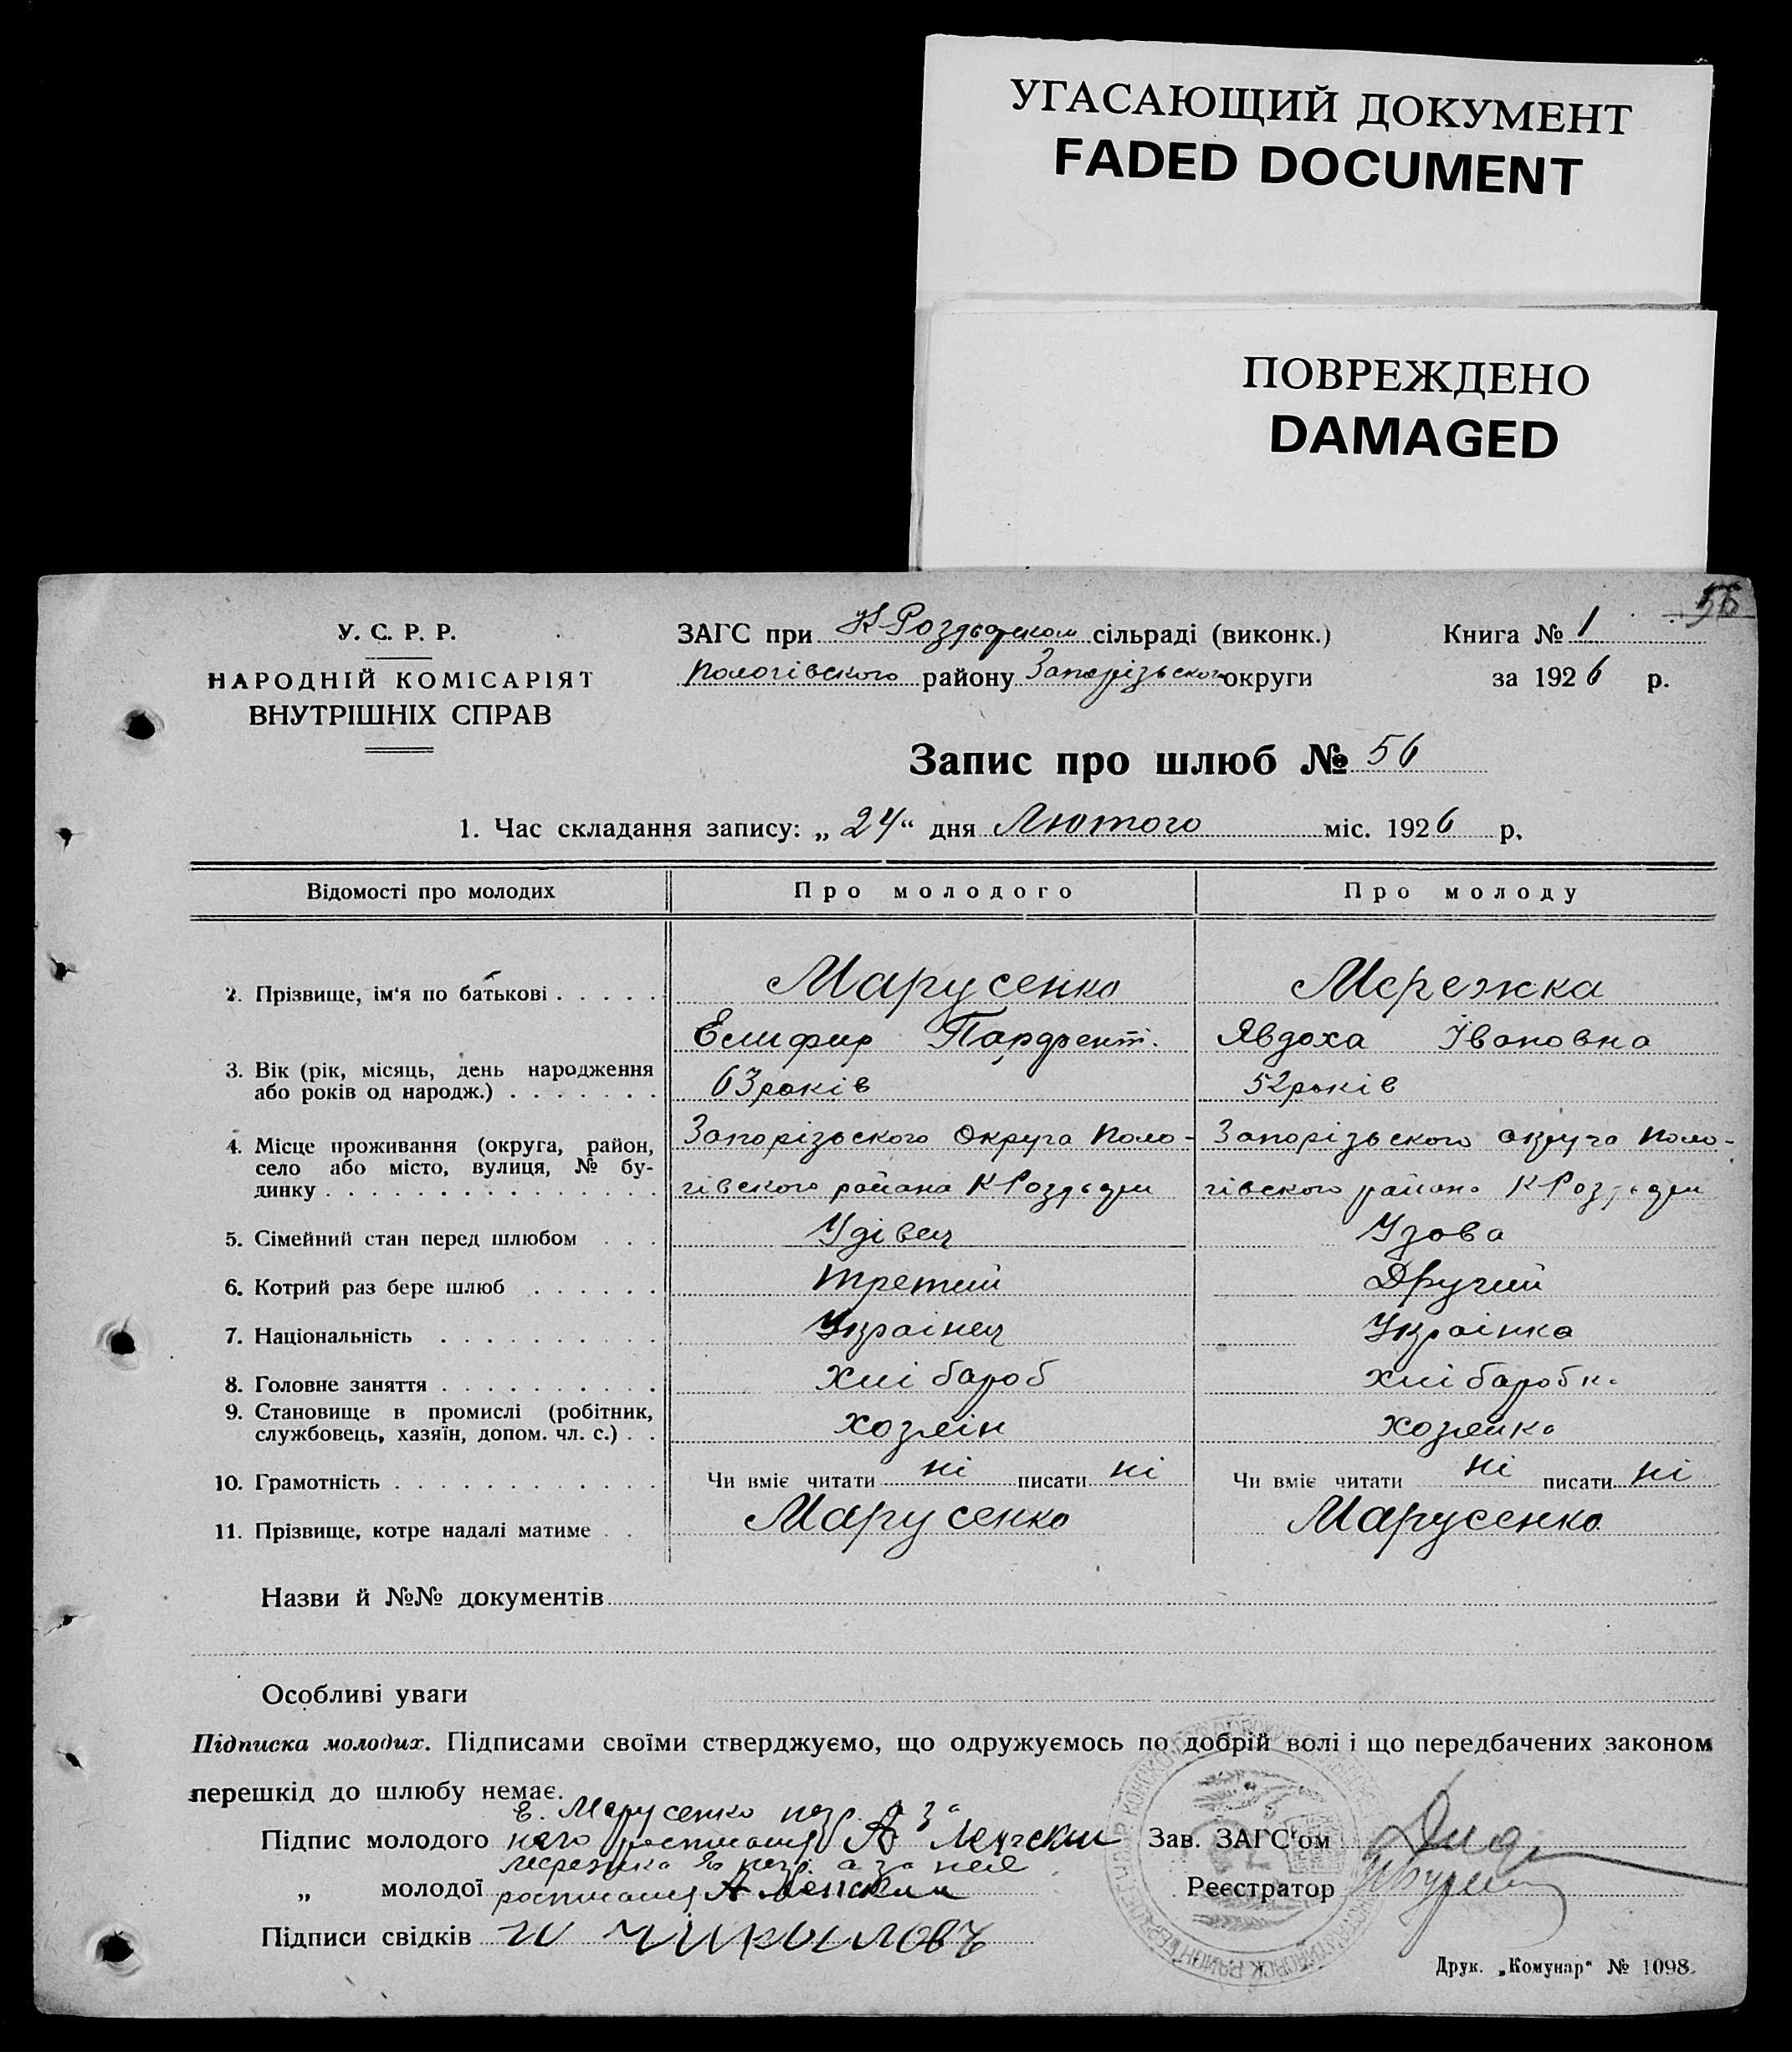 УГАСАЮЩИЙ ДОКУМЕНТ
FADED DOCUMENT
ПОВРЕЖДЕНО
DAMAGED
56
У. С. Р. Р.
НАРОДНІЙ КОМІСАРІЯТ
ВНУТРІШНІХ СПРАВ
ЗАГС при сільраді (виконк.)
Пологівского району Запорізьского округи
Книга № 1
за 1926 р.
Запис про шлюб № 56
1. Час складання запису: „ 24 “ дня Лютого міс. 1926 р.
Відомості про молодих Про молодого Про молоду
2. Прізвище, ім‘я по батькові . . . . . Марусенко Мережка
Елифир Парфент. Явдоха Івановна
3. Вік (рік, місяць, день народження
або років од народж.) . . . . . . . 63 років 52 років
4. Місце проживання (округа, район,
село або місто, вулиця, № бу-
динку . . . . . . . . . . . . . . .
Запорізьского Округа Поло- Запорізьского округа Поло-
гівского района К Роздори гівского района К Роздори
5. Сімейний стан перед шлюбом . . . Удівец Удова
6. Котрий раз бере шлюб . . . . . . Третий Другий
7. Національність . . . . . . . . . . Украінец Украінка
8. Головне заняття . . . . . . . . . . Хлібароб Хлібаробк.
9. Становище в промислі (робітник,
службовець, хазяїн, допом. чл. с.) . . Хозяін Хозяйка
10. Грамотність . . . . . . . . . . . . Чи вміє читати ні писати ні Чи вміє читати ні писати ні
11. Прізвище, котре надалі матиме . . Марусенко Марусенко
Назви й №№ документів
Особливі уваги
Підписка молодих. Підписами своїми стверджуємо, що одружуємось по добрій волі і що передбачених законом
перешкід до шлюбу немає.
Е. Марусенко негр. а за
Підпис молодого него росписался А Зав. ЗАГС‘ом
Мережка Я негр. а за нея
„ молодої росписался А Реєстратор
Підписи свідків
Друк. „Комунар“ № 1098.